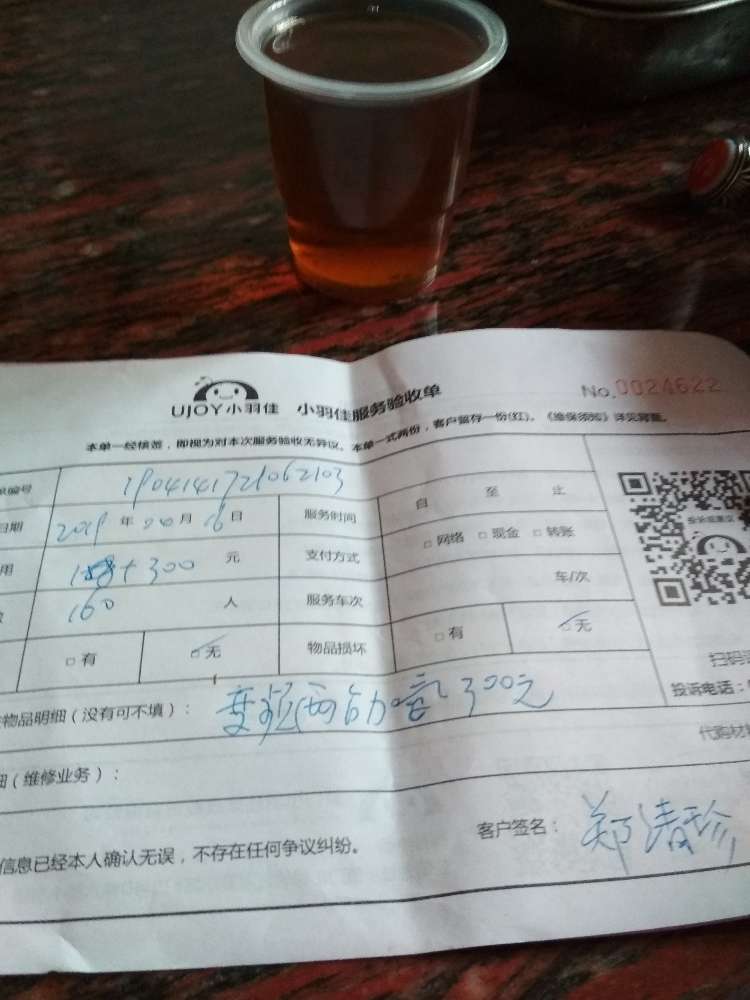 UJOY小羽佳 小羽佳服务验收单 No.0024622
本单一经核签，即视为对本次服务验收无异议。本单一式两份，客户留存一份(红)。《维保须知》详见背面。
编号 1904141721062103
日期 2019 年 04 月 16 日 服务时间 自 至 止
用 +300 元 支付方式 □ 网络 □ 现金 □ 转账
160 人 服务车次 车/次
□ 有 □ 无 物品损坏 □ 有 □ 无
扫码
物品明细（没有可不填）： 变频两台加 300元 投诉电话：
代购材
（维修业务）：
客户签名： 郑清珍
信息已经本人确认无误，不存在任何争议纠纷。